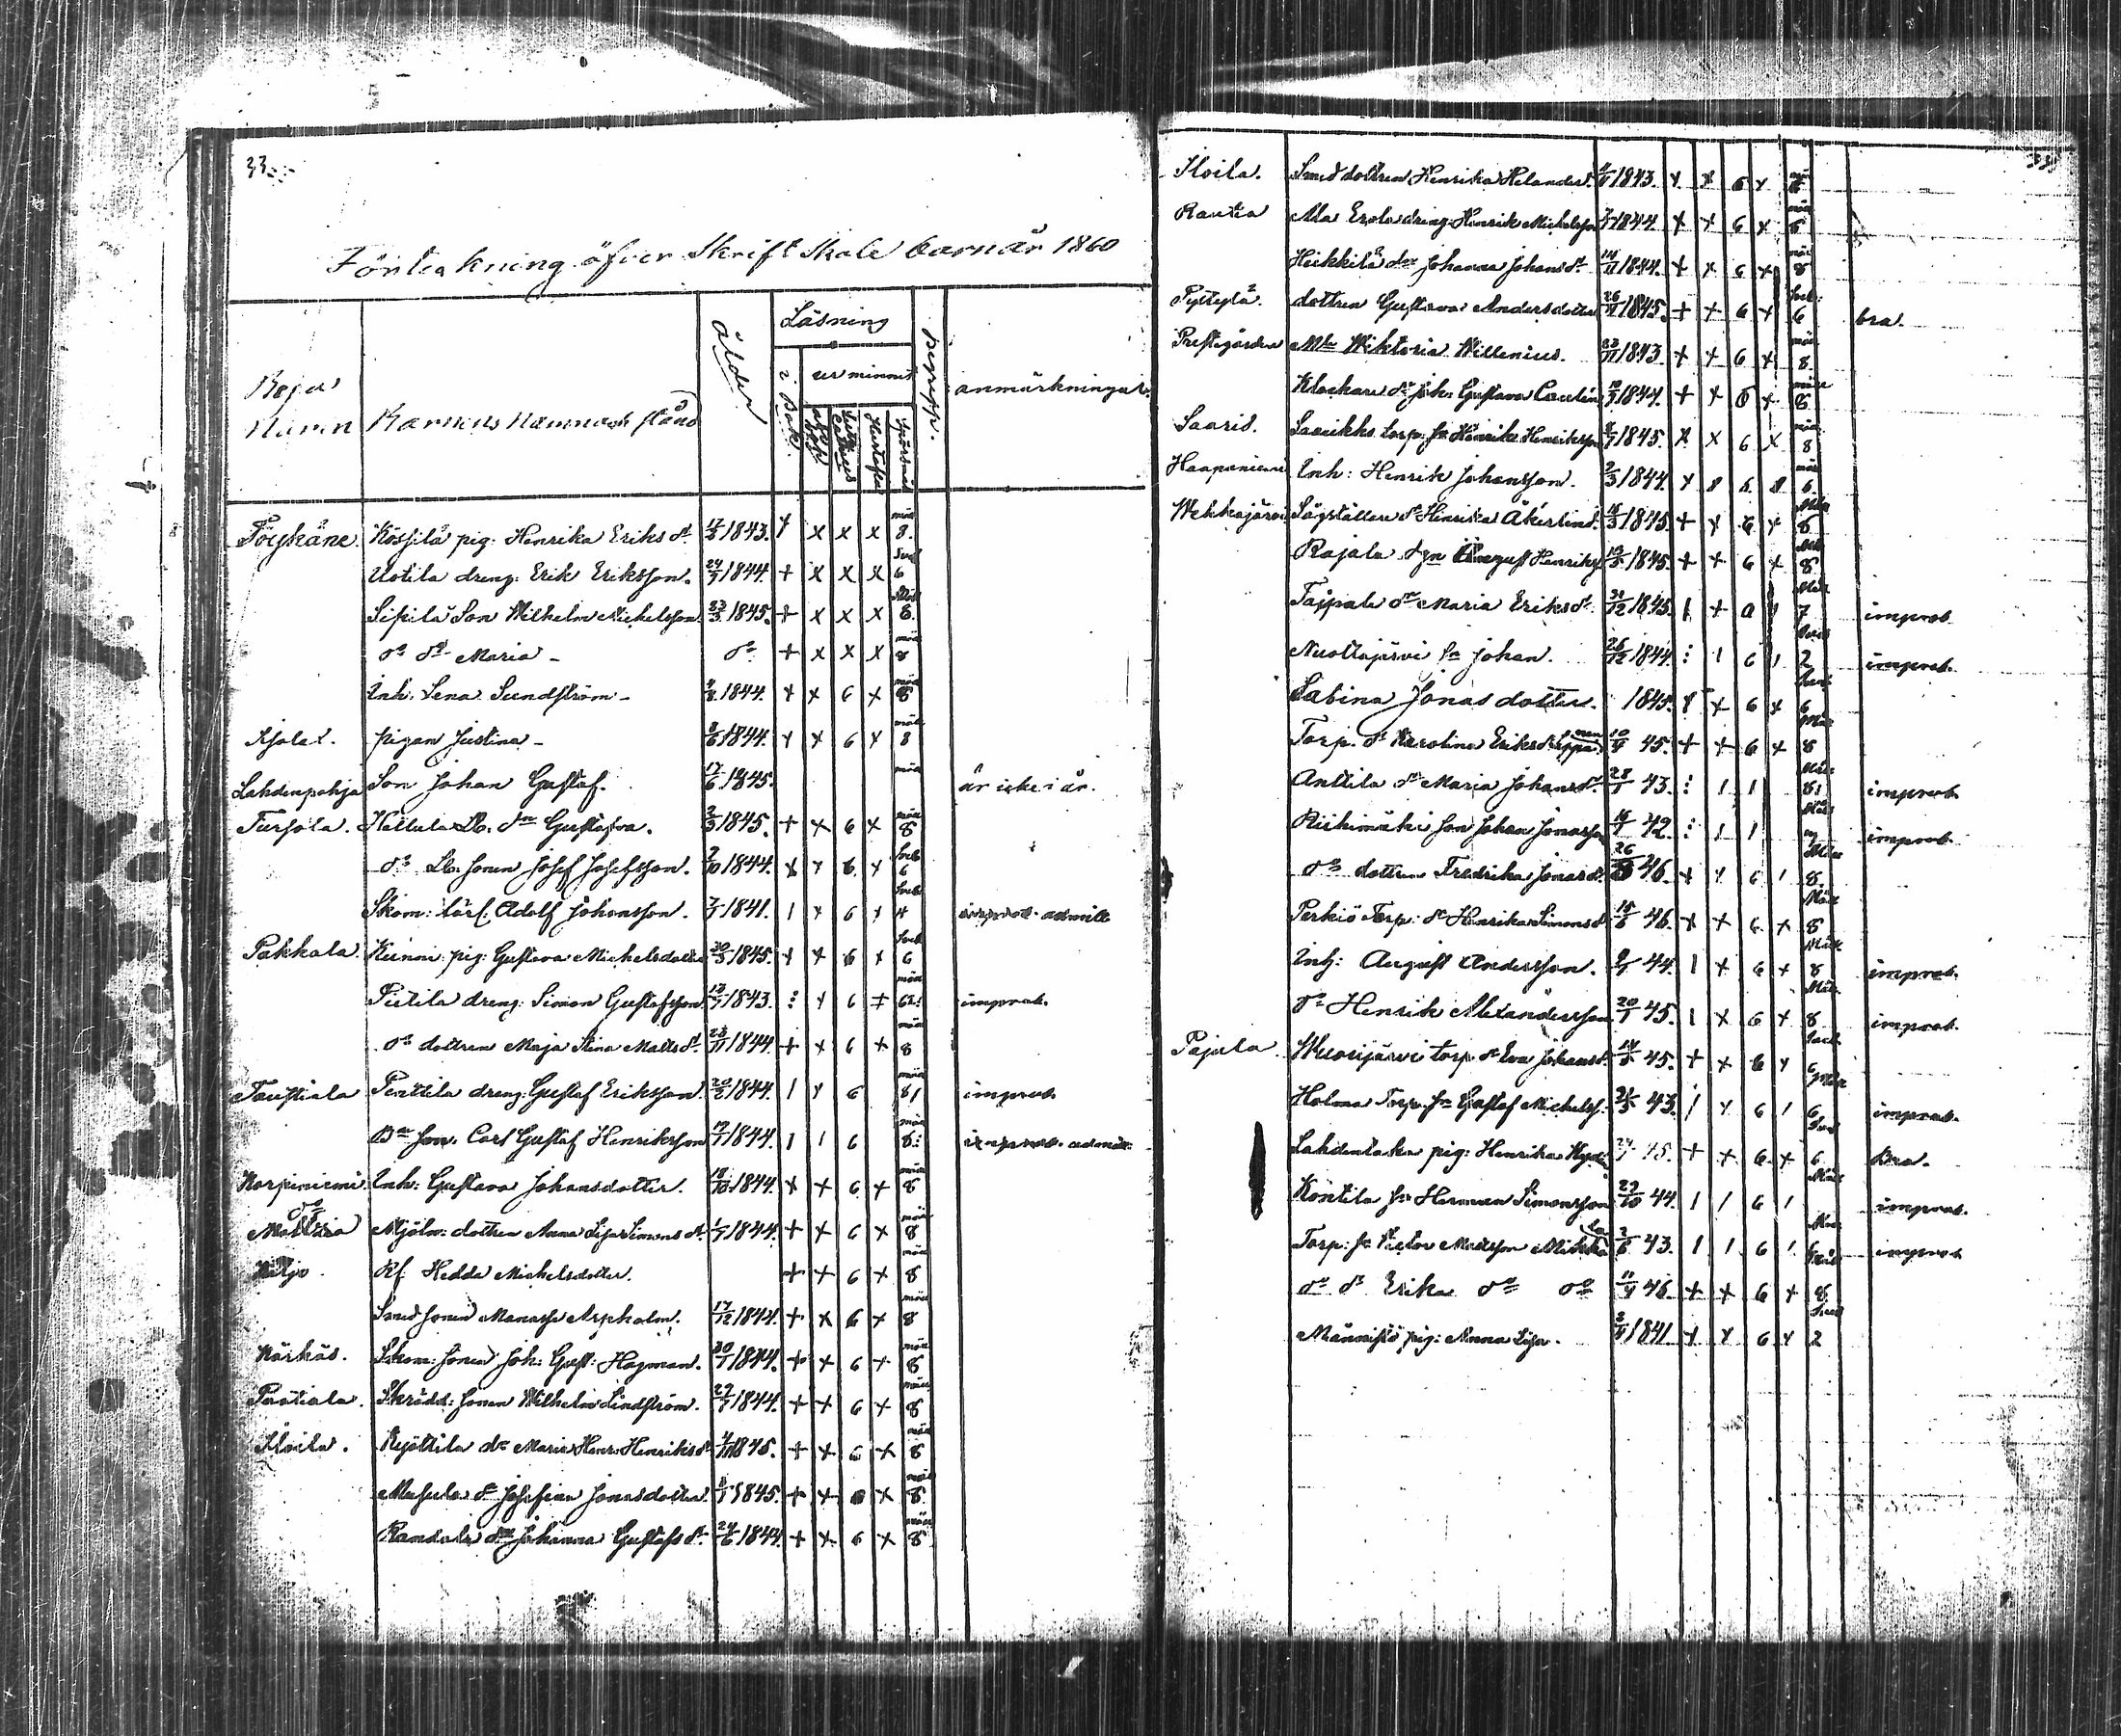 33
Förteckning öfver Skrift Skole barn år 1860
Byar
Namen
Barnens Namn och stånd
ålder
Läsning
i Bok
ur minnet
begrepp.
anmärkningar
Kössilä pig: Henrika Eriks dr 1843. x x x x 8.
Uotila dreng: Erik Eriksson. 24/7 1844. + x x x 6
Sipilä Son Wilhelm Michelsson 23/3 1845. + x x x 8.
do dr Maria - do + x x x 8
Inh. Lena Sundström - 1844. + x 6 x 8
pigan Justina - 1844. x x 6 x 8
Lahdenpohja Son Johan Gustaf. 17/6 1845. är icke i år.
Tursola. Hellula Dr Gustafva. 2/3 1845. + x 6 x 8
do Sonen Josef Josefsson. 7/10 1844. x x 6 x 6
Skom: lärl. Adolf Johansson. 7/7 1841. 1 x 6 x 4 improb. admitt
Pakkala. Kunni pig: Gustava Michelsdotter 30/3 1845. x x 6 x 6
Pietilä dreng: Simon Gustafsson 13/7 1843. : x 6 ‡ improb.
do dottren Maja Stina Matts dr 23/11 1844. + x 6 x 8
Tauriala Penttilä dreng: Gustaf Eriksson 20/2 1844. 1 x 6 81 improb.
son. Carl Gustaf Henriksson 17/7 1844. 1 1 6 8: improb. admitt.
Korpiniemi Inh: Gustava Johansdotter. 18/10 1844. x x 6 x 8
Mjöln: dottren Anna Lisa Simons dr 1844. + x 6 x 8
Hedda Michelsdotter. + + 6 x 8
Smed sonen Manasse Aspholm. 17/12 1844. + x 6 x 8
Skom: sonen Joh: Gust: Hagman. 30/7 1844. + x 6 x 8
Skrädd: sonen Wilhelm Lindström. 29/7 1844. + + 6 x 8
Iloila. Maria Henr: Henriks dr 1845. + x 6 x 8
dr Josefina Jonasdotter. 1845. + x 6 x 8
Johanna Gustafs dr 24/6 1844. + x 6 x 8
33
Iloila. Smed dottren Henrika Helander 1843. x x 6 x 8
Rautia Ala Erola dreng Henrik Michelsson 1844. x x 6 x 8
Heikkilä dr Johanna Johans dr 1844. + x 6 x 8
Pyttylä. dottren Gustava Andersdotter 26/11 1845. + + 6 x 6 bra.
Prestgården Mlle Wiktoria Willenius. 23/11 1843. + x 6 x 8
Klockare dr Joh. Gustava Caselius 1844. + x 6 x 8
Saaris. torp: sn Henrik Henriksson 1845. x x 6 x 8
Haapaniemi Inh: Henrik Johansson. 2/3 1844. x 8 6 8 6.
Wehkajärvi dr Henrika Åkerlind. 1845 + x 6 x 8
Rajala sn August Henriks 1845. + + 6 x 8
Taipale dr Maria Eriks dr 31/12 1845. 1 + 0 1 7 improb.
Nuottajärvi sn Johan. 26/12 1844. : 1 6 1 2 improb.
Sabina Jonas dotter. 1845. x x 6 x 6
Torp. dr Karolina Eriks dr 10/4 45. + + 6 x 8
Anttila dr Maria Johans dr 28/1 43. : 1 1 81 improb.
Riihimäki son Johan Jonasson 42. : 1 1 improb.
do dottren Fredrika Jonas dr 26 46. x x 6 1 8
Perkiö Torp: dr Henrika Simons dr 15/6 46. x x 6 x 8
Inh: August Andersson. 44. 1 x 6 x 8 improb.
do Henrik Alexandersson 20/1 45. 1 x 6 x 8 improb.
Pajula Wuorijärvi torp. dr Eva Johans dr 45. + x 6 x 6
Holma Torp. sn Gustaf Michelss. 43. 1 x 6 1 6 improb.
pig: Henrika 45. + x 6 x 6 Bra.
Konttila sn Herman Simonsson 29/10 44. 1 1 6 1 improb.
Torp: sn Victor Mattsson 43. 1 1 6 1 improb
do dr Erika do do 11/4 46. x x 6 + 8.
Männistö pig: Anna Lisa. 1841. + x 6 x 2